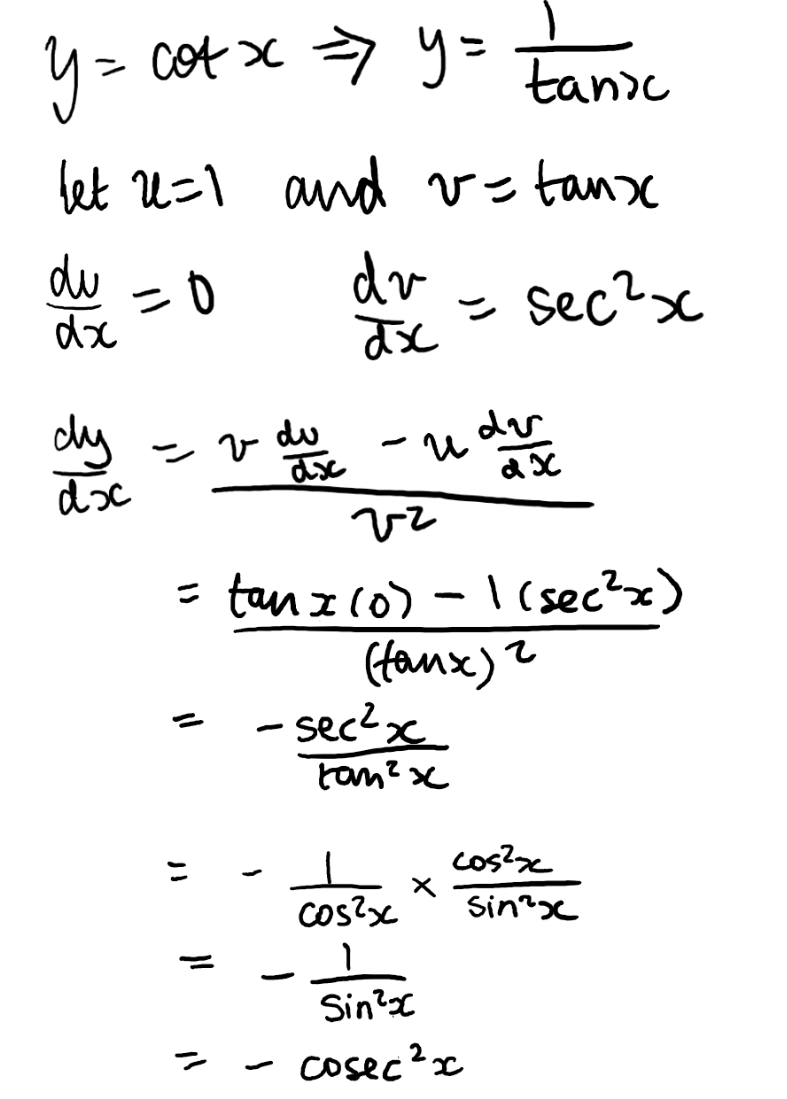 y = cot x ⇒ y = 1/tanx
let u=1 and v = tanx
du/dx = 0 dv/dx = sec²x
dy/dx = (v du/dx - u dv/dx)/v²
= (tanx(0) - 1(sec²x))/(tanx)²
= -sec²x/tan²x
= - 1/cos²x × cos²x/sin²x
= - 1/sin²x
= - cosec²x